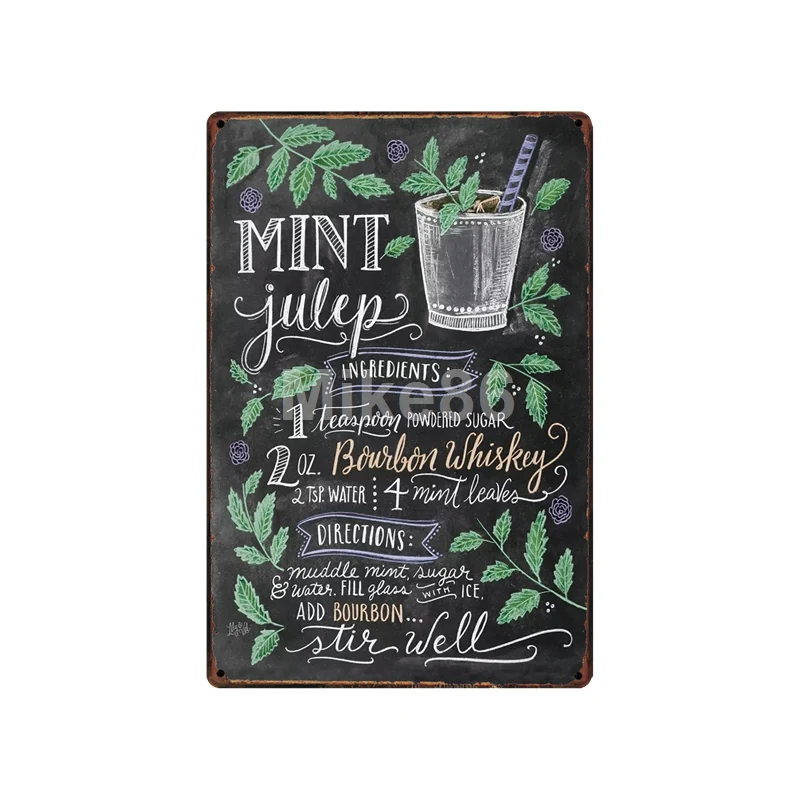 MINT
julep
INGREDIENTS:
Mike86
1 teaspoon POWDERED SUGAR
2 OZ. Bourbon Whiskey
2 TSP. WATER 4 mint leaves
DIRECTIONS:
muddle mint, sugar
& water. FILL glass WITH ICE,
ADD BOURBON...
stir well